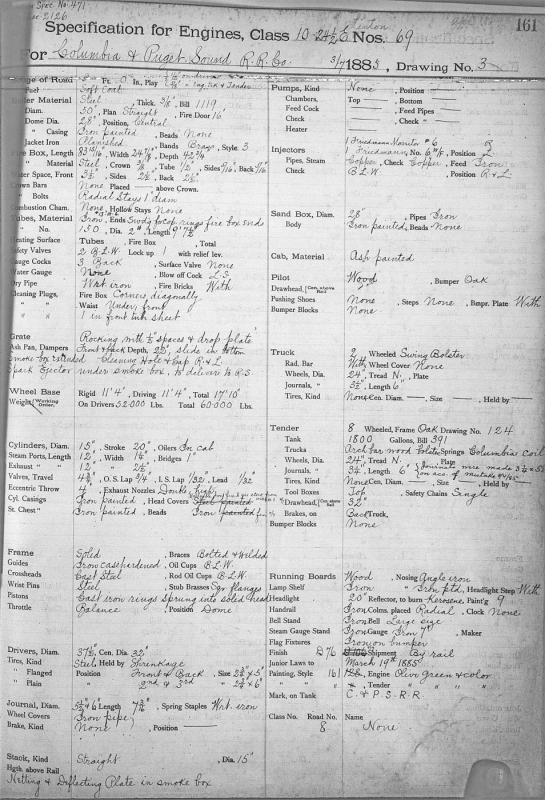 Spec No. 471
2126
161
Specification for Engines, Class 10-24½ E Nos. 69
For Columbia & Puget Sound R.R. Co. 3/7 1885, Drawing No. 3
Gauge of Road 3 Ft. 0 In., Play
Fuel Soft Coal
Material Steel, Thick. 3/8", Bill 1119
Diam. 50", Plan Straight, Fire Door 16"
Dome Dia. 28", Position, Central
" Casing Iron painted, Beads None
Jacket Iron Planished, Bands Brass, Style 3
Fire Box, Length 83 15/16", Width 24 7/8", Depth 42 3/4"
" Material Steel, Crown 3/8", Tube 1/2", Sides 5/16", Back 5/16"
Water Space, Front 3½", Sides 2½", Back 2½"
Crown Bars None, Placed — above Crown.
" Bolts Radial Stays 1" diam
Combustion Cham. None, Hollow Stays None
Tubes, Material Iron, Ends Swdg to cop. rings fire box ends
" No. 150, Dia. 2", Length 9' 7½"
Heating Surface Tubes, Fire Box, Total
Safety Valves 2 B.L.W. Lock up 1 with relief lev.
Gauge Cocks 3 Back, Surface Valve None
Water Gauge None, Blow off Cock L.S.
Dry Pipe Wrt. iron, Fire Bricks With
Cleaning Plugs, Fire Box Corners, diagonally
" " Waist Under, front
" " 1 in front tub. sheet
Grate Rocking with ½" spaces & drop plate
Ash Pan, Dampers Front & back Depth, 22", slide in bottom
Smoke box extended Cleaning Hole & Cap. R & L.
Spark Ejector under smoke box, to deliver to R.S.
Wheel Base Rigid 11' 4", Driving 11' 4", Total 17' 10"
Weight, (Working Order, On Drivers 52000 Lbs. Total 60000 Lbs.
Cylinders, Diam. 15", Stroke 20", Oilers In cab
Steam Ports, Length 12", Width 1¼", Bridges 1"
Exhaust " " 12", 2½"
Valves, Travel 4¾", O.S. Lap 3/4", I.S. Lap 1/32", Lead 1/32"
Eccentric Throw 4", Exhaust Nozzles Double High
Cyl. Casings Iron painted, Head Covers
St. Chest " Iron painted, Beads Iron painted
Frame Solid, Braces Bolted & Welded
Guides Iron casehardened, Oil Cups B.L.W.
Crossheads Cast Steel, Rod Oil Cups B.L.W.
Wrist Pins Steel, Stub Brasses Sqr. flanges
Pistons Cast iron rings sprung into solid head
Throttle Balance, Position Dome
Drivers, Diam. 37½", Cen. Dia. 32"
Tires, Kind Steel, Held by Shrinkage
" Flanged Position Front & Back, Size 2¾" x 5"
" Plain " 2nd & 3rd " 2¾" x 6"
Journal, Diam. Length 7½", Spring Staples Wrt. iron
Wheel Covers Iron pipe
Brake, Kind None, Position —
Stack, Kind Straight, Dia. 15"
Hgth. above Rail
Netting & Deflecting Plate in smoke box
Pumps, Kind None, Position —
Chambers, Top —, Bottom —
Feed Cock —, Feed Pipes —
Check —, Check " —
Heater
Injectors 1 Friedmann Monitor #6 R
1 Friedmann, No. 6 "F", Position L
Pipes, Steam Copper, Check Copper, Feed Iron
Check B.L.W., Position R & L.
Sand Box, Diam. 28", Pipes Iron
Body Iron painted, Beads None
Cab, Material Ash painted
Pilot Wood, Bumper Oak
Drawhead, (Cen. above Rail
Pushing Shoes None, Steps None, Bmpr. Plate With
Bumper Blocks None
Truck 2 Wheeled Swing Bolster
Rad. Bar With Wheel Cover None
Wheels, Dia. 24", Tread N., Plate
Journals, " 5½", Length 6"
Tires, Kind None, Cen. Diam. —, Size —, Held by —
Tender 8 Wheeled, Frame Oak Drawing No. 124
Tank 1800 Gallons, Bill 391
Trucks Arch bar wood bolster, Springs Columbia coil
Wheels, Dia. 24", Tread N., Plate
Journals, " 3¼", Length 6"
Tires, Kind None, Cen. Diam. —, Size —, Held by —
Tool Boxes Top, Safety Chains Single
Drawhead, (Cen. above Rail 32"
Brakes, on Back Truck,
Bumper Blocks None
Running Boards Wood, Nosing Angle iron
Lamp Shelf Iron " Iron ptd, Headlight Step With
Headlight 20" Reflector, to burn Kerosene, Paint'g 9
Handrail Iron Colms. placed Radial, Clock None
Bell Stand Iron, Bell Large size
Steam Gauge Stand Iron, Gauge Iron 7", Maker
Flag Fixtures Iron on bumper
Finish D76 Shipment By rail
Junior Laws to March 19th 1885
Painting, Style 161, Engine Olive green & color
" Tender " " "
Mark, on Tank C. & P. S. R. R.
Class No. Road No. Name
8 None